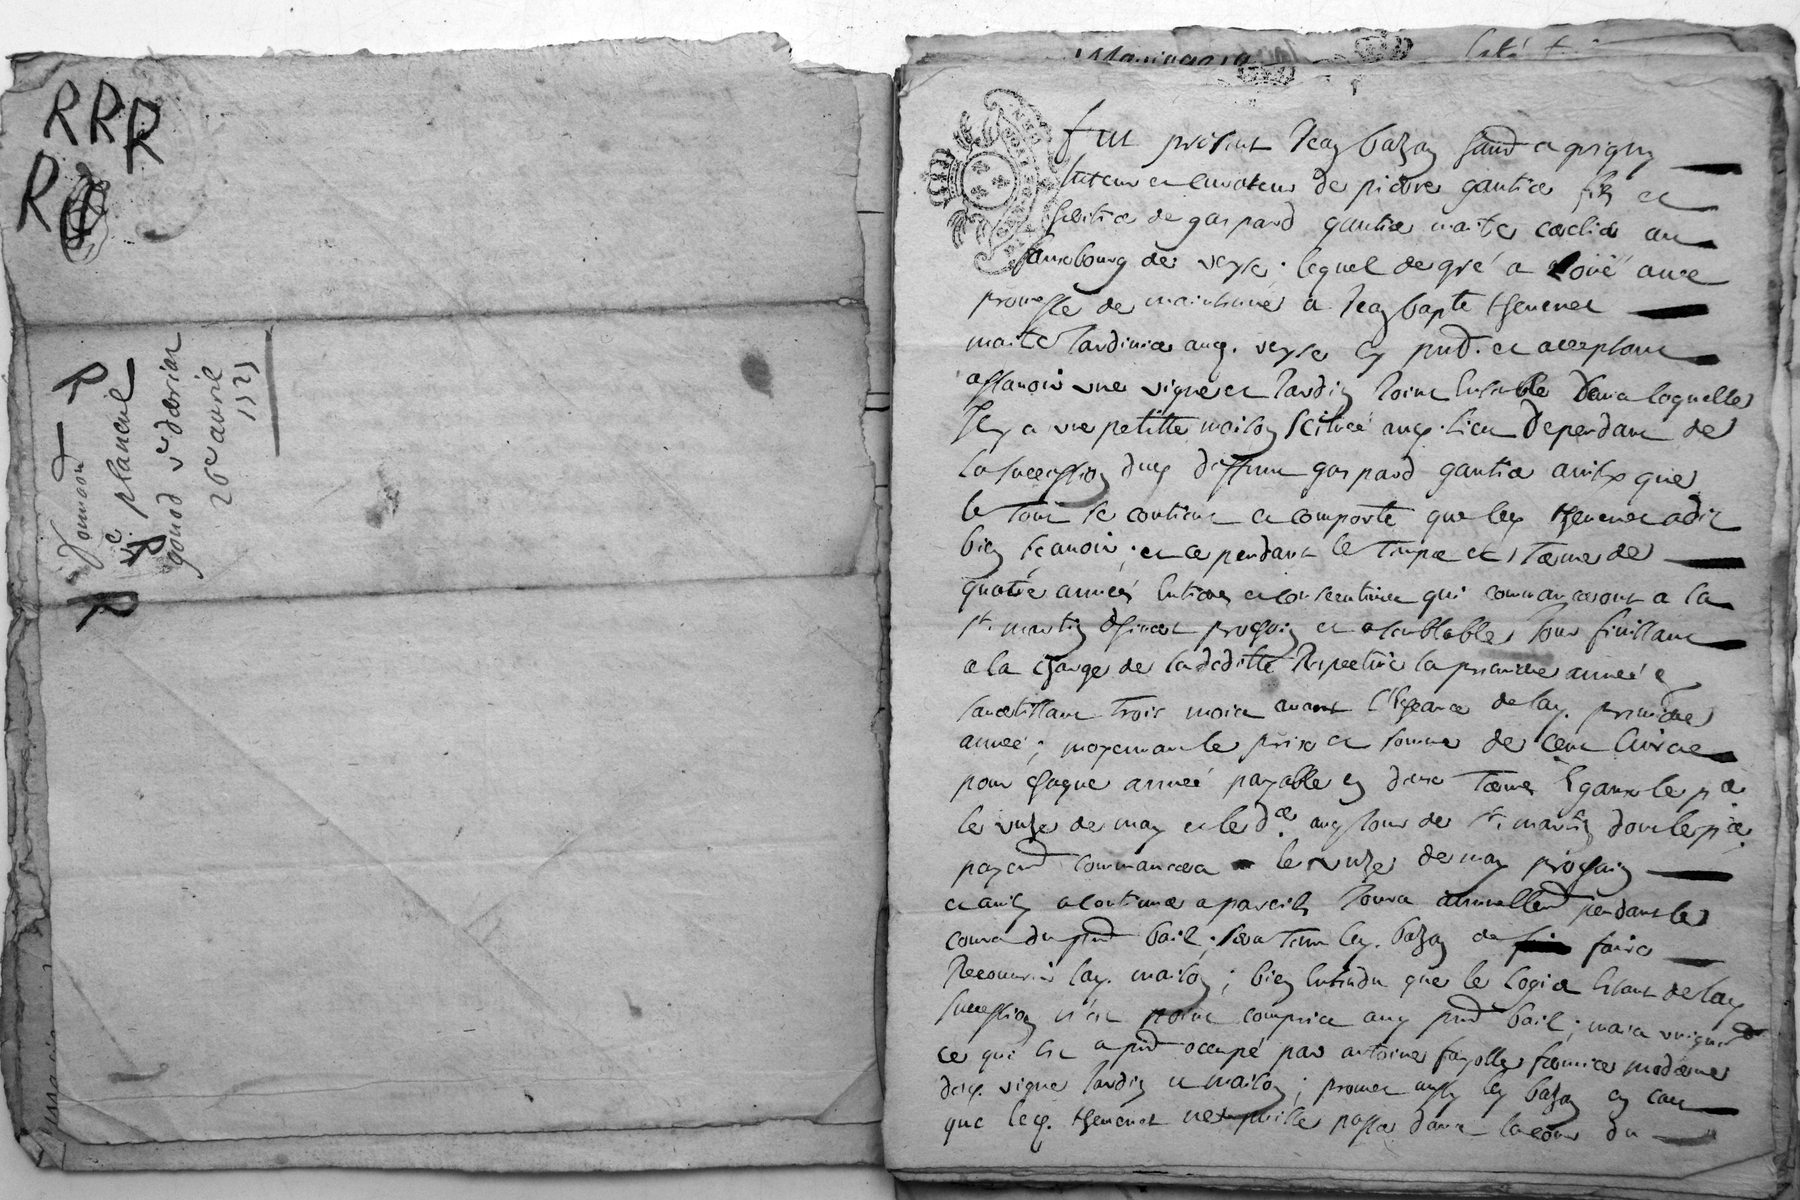 RRR
R
R
Donnaon
R
ve planenc
R
gonod ve dervieu
26e avril
1323
R
fut present Jean bazan
tuteur et curateur de pierre gautier fils et
heritier de gaspard gautier maitre cerclier au
fauxbourg de veyse. lequel de gré a loüé avec
promesse de maintenue a Jean bapte thevenet
maitre Jardinier auq. veyse cy pnt. et acceptant
assavoir une vigne et Jardin Joint Ensemble dans laquelle
Il y a une petitte maison scituée auq. lieu Dependant de
la succession duq deffunt gaspard gautier ainsy que
le tout se contient et comporte que leq thevenet a dit
bien sçavoir; et ce pendant le temps et terme de
quatre années Entieres et consecutives qui commanceront a la
st. martin d'hivert prochain et a semblable Jour finissant
a la charge de la deditte Respective la premiere année
savertissant trois mois avant l'Escheance de laq. premiere
année; moyennant le prix et somme de cent livres
pour chaque année payable en deux termes Egaux le per
le unze de may et le der auq Jour de st. martin dont le per
payent commancera le unze de may prochain
et ainsy a continuer a pareils Jours annuellent pendant le
cours du pnt bail; sera tenu leq. bazan de faire
Recouvrir laq. maison; bien Entendu que le logis Estant de laq
succession n'est point compris auq pnt bail; mais uniquent
ce qui est a pnt occupé par antoine fayolle fermier moderne
desq. vigne Jardin et maison; promet aussy leq bazan en cas
que leq. thevenet ne puisse passer dans la cour du